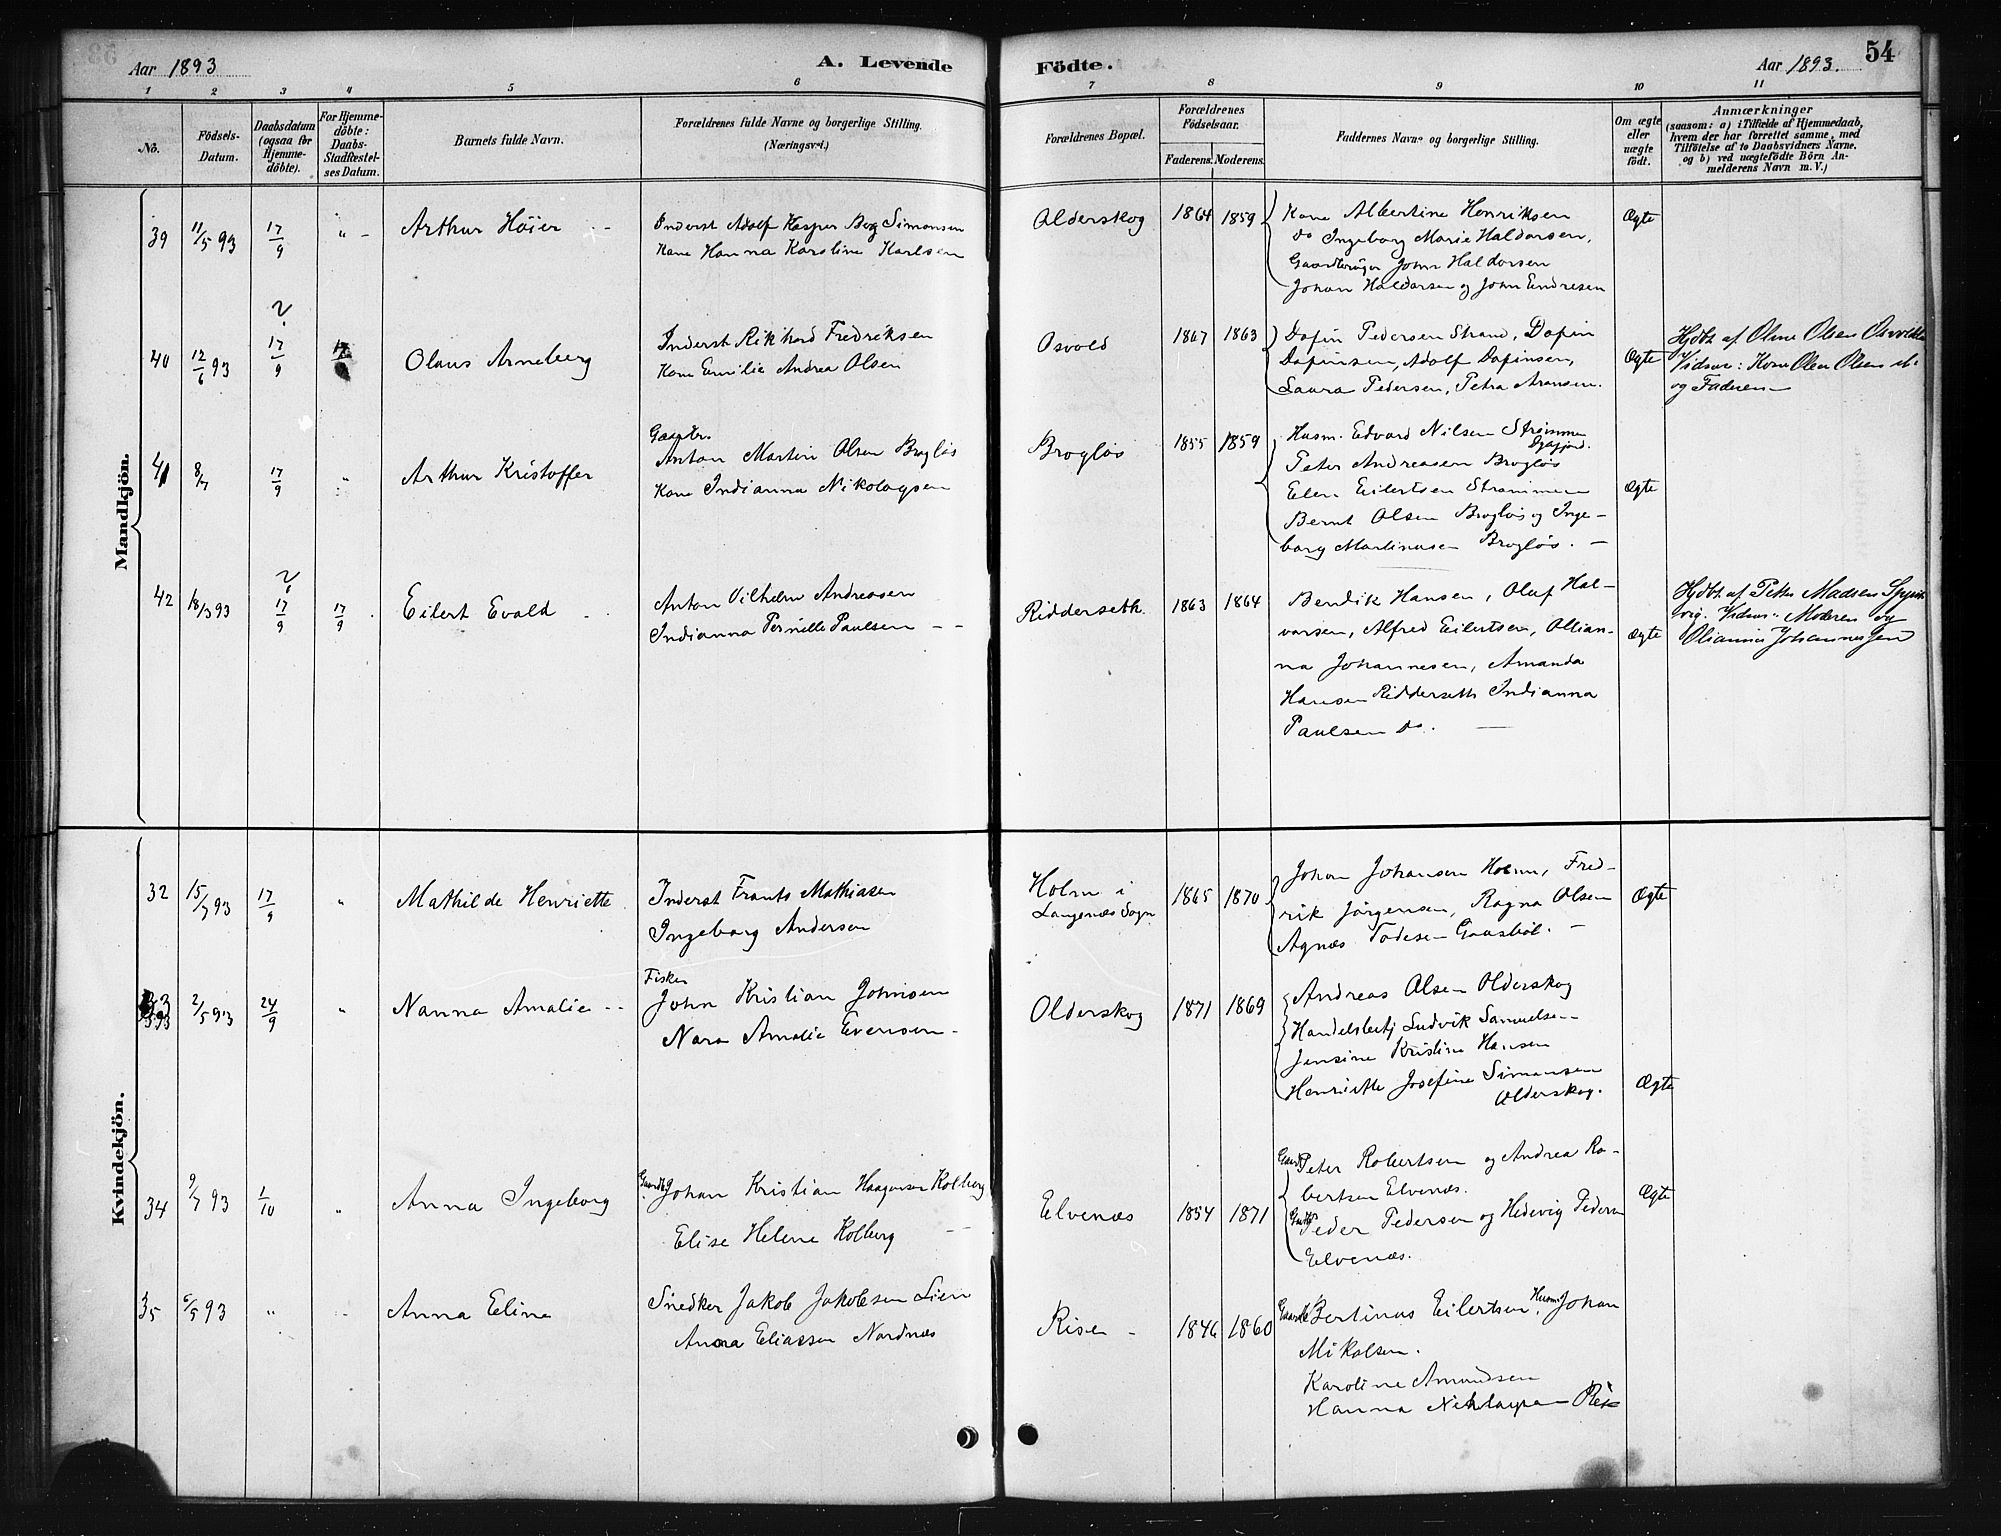 Aar 1893
A. Levende
Födte.
Aar 1893.
54
1 2 3 4 5 6 7 8 9 10 11
No.
Födsels-
Datum.
Daabsdatum
(ogsaa for
Hjemme-
döbte).
For Hjemme-
döbte:
Daabs-
Stadfæstel-
ses Datum.
Barnets fulde Navn.
Forældrenes fulde Navne og borgerlige Stilling.
(Næringsvei.)
Forældrenes Bopæl.
Forældrenes
Födselsaar.
Faderens. Moderens.
Faddernes Navne og borgerlige Stilling.
Om ægte
eller
uægte
født.
Anmærkninger
(saasom: a) i Tilfælde af Hjemmedaab,
hvem der har forrettet samme, med
Tilföielse af to Daabsvidners Navne,
og b) ved uægtefödte Börn An-
melderens Navn m. V.)
Mandkjön.
39 11/5 93 17/9 " - Arthur Höier
Inderst Adolf Kasper Berg Simonsen
Kone Hanna Karoline Karlsen
Olderskog 1864 1859
Kone Albertine Henriksen
do Ingeborg Marie Haldorsen,
Gaardbruger John Haldorsen
Johan Haldorsen og John Endresen
Ægte
40 12/6 93 17/9 Olaus Arneberg
Inderst Rikhard Fredriksen
Kone Emilie Andrea Olsen
Osvold 1867 1863
Dafin Pedersen Strand, Dafin
Dafinsen, Adolf Dafinsen,
Laura Pedersen, Petra Aronsen.
Ægte
Hjdbt af Oline Olsen
Vidner: Kone Olea Olsen
og Faderen
41 8/7 17/9 " Arthur Kristoffer
Anton Martin Olsen Brogløs
Kone Indianna Nikolaysen
Brogløs 1855 1859
Husm. Edvard Nilsen Strömmen
Peter Andreasen Brogløs
Elen Eilertsen Strømmen
Bernt Olsen Brogløs og Inge-
borg Martinusen Brogløs.
Ægte
42 18/7 93 17/9 17/9 Eilert Evald
Anton Vilhelm Andreasen
Indianna Pernille Paulsen
Ridderseth 1863 1864
Bendik Hansen, Oluf Hal-
varsen, Alfred Eilertsen, Olian-
na Johannesen, Amanda
Hansen Ridderseth Indianna
Paulsen do.
Ægte
Hjdbt. af Peter Madsen
vig. Vidner: Moderen og
Olianna Johannesen
Kvindekjön.
32 15/7 93 17/9 " Mathilde Henriette
Inderst Frants Mathiasen
Ingeborg Andersen
Holm i
Langenæs Sogn
1865 1870
Johan Johansen Holm, Fred-
rik Jörgensen, Ragna Olsen
Agnæs Todesen Gaasböl.
Ægte
33 2/5 93 24/9 " Nanna Amalie
Fisker
John Kristian Johnsen
Nora Amalie Evensen
Olderskog 1871 1869
Andreas Olsen Olderskog
Handelsbetj Ludvik Samuelsen
Jensine Kristine Hansen
Henriette Josefine Simonsen
Olderskog.
Ægte
34 9/7 93 1/10 " Anna Ingeborg
Gaardb Johan Kristian Haagensen Kolberg
Elise Helene Kolberg
Elvenæs 1854 1871
Gaardb Peter Robertsen og Andrea Ro-
bertsen Elvenæs.
Gaardb Peder Pedersen og Hedevig Pedersen
Elvenæs.
Ægte
35 6/5 93 " Anna Eline
Snedker Jakob Jakobsen Lien
Anna Eliassen Nordnæs
Risen 1846 1860
Gaardb Bertinus Eilertsen, Husm. Johan
Mikalsen.
Karoline Amundsen
Hanna Nikolaysen